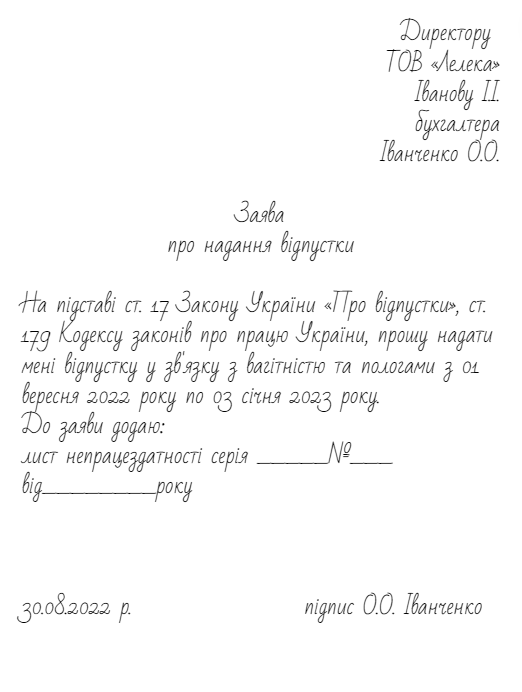 Директору
ТОВ «Лелека»
Іванову І.І.
бухгалтера
Іванченко О.О.
Заява
про надання відпустки
На підставі ст. 17 Закону України «Про відпустки», ст.
179 Кодексу законів про працю України, прошу надати
мені відпустку у зв'язку з вагітністю та пологами з 01
вересня 2022 року по 03 січня 2023 року.
До заяви додаю:
лист непрацездатності серія _____№___
від________року
30.08.2022 р. підпис О.О. Іванченко